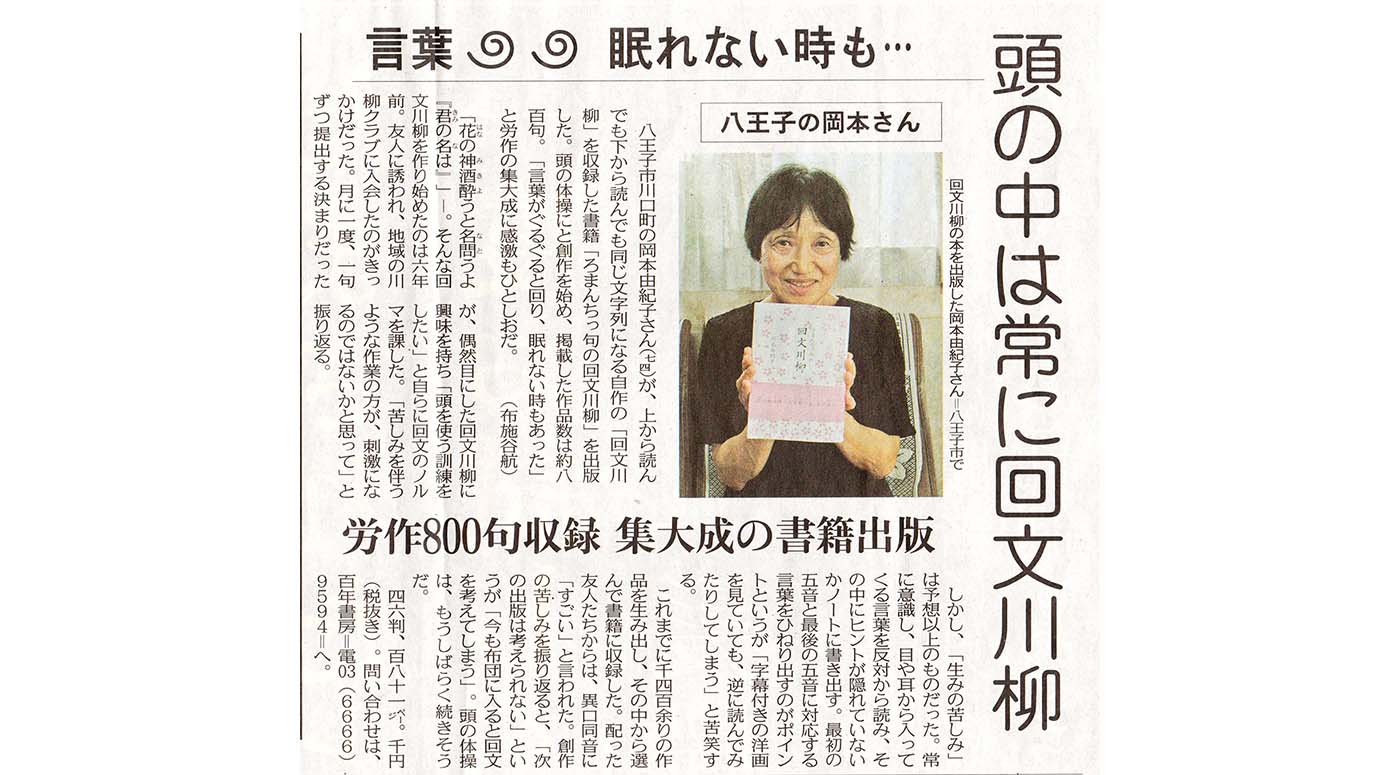 頭の中は常に回文川柳
言葉 眠れない時も…
八王子の岡本さん
回文川柳の本を出版した岡本由紀子さん＝八王子市で
回文川柳
八王子市川口町の岡本由紀子さん(七四)が、上から読ん
でも下から読んでも同じ文字列になる自作の「回文川
柳」を収録した書籍「ろまんちっ句の回文川柳」を出版
した。頭の体操にと創作を始め、掲載した作品数は約八
百句。「言葉がぐるぐると回り、眠れない時もあった」
と労作の集大成に感激もひとしおだ。（布施谷航）
「花の神酒酔うと名問うよ
はな みき よ な と
『君の名は』」－。そんな回
きみ な
文川柳を作り始めたのは六年
前。友人に誘われ、地域の川
柳クラブに入会したのがきっ
かけだった。月に一度、一句
ずつ提出する決まりだった
が、偶然目にした回文川柳に
興味を持ち「頭を使う訓練を
したい」と自らに回文のノル
マを課した。「苦しみを伴う
ような作業の方が、刺激にな
るのではないかと思って」と
振り返る。
労作800句収録 集大成の書籍出版
しかし、「生みの苦しみ」
は予想以上のものだった。常
に意識し、目や耳から入って
くる言葉を反対から読み、そ
の中にヒントが隠れていない
かノートに書き出す。最初の
五音と最後の五音に対応する
言葉をひねり出すのがポイン
トというが「字幕付きの洋画
を見ていても、逆に読んでみ
たりしてしまう」と苦笑す
る。
これまでに千四百余りの作
品を生み出し、その中から選
んで書籍に収録した。配った
友人たちからは、異口同音に
「すごい」と言われた。創作
の苦しみを振り返ると、「次
の出版は考えられない」とい
うが「今も布団に入ると回文
を考えてしまう」。頭の体操
は、もうしばらく続きそう
だ。
四六判、百八十一㌻。千円
（税抜き）。問い合わせは、
百年書房＝電03（6666）
9594＝へ。